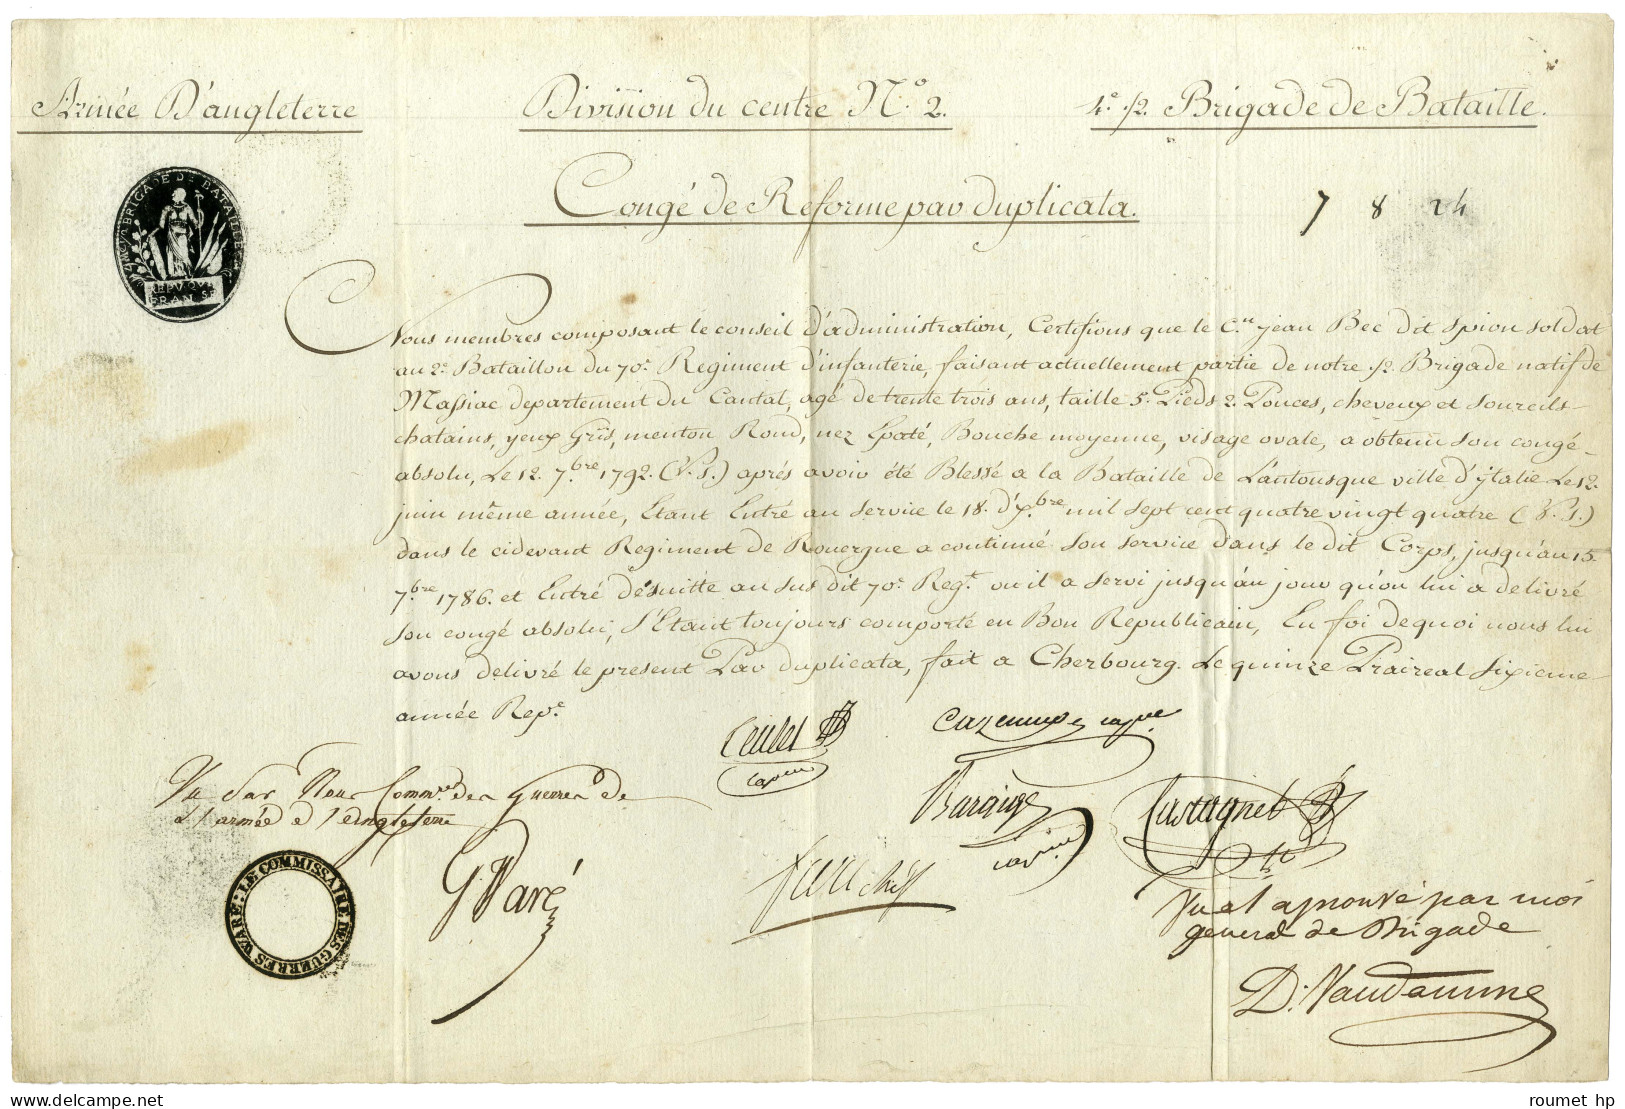 Armée D'angleterre
Division du centre N.° 2.
4.e 1/2. Brigade de Bataille.
BRIGADE DE BATAILLE
REPUQUE
FRANSE
Congé de Reforme par duplicata.
7 8 24
Nous membres composant le conseil d'administration, Certifions que le C.en jean Bec dit Spion soldat
au 2.e Bataillon du 70.e Regiment d'infanterie, faisant actuellement partie de notre 1/2 Brigade natif de
Massiac departement du Cantal, agé de trente trois ans, taille 5. Pieds 2. Pouces, cheveux et sourcils
chatains, yeux Gris, menton Rond, nez Epaté, Bouche moyenne, visage ovale, a obtenu son congé
absolu, Le 12. 7.bre 1792. (V. S.) aprés avoir été Blessé a la Bataille de Lantousque ville d'ytalie Le 12.
juin même année, Etant Entré au service le 18. d'X.bre mil sept cent quatre vingt quatre (V. S.)
dans le cidevant Regiment de Rouergue a continué son service dans le dit Corps, jusqu'au 15
7.bre 1786. et Entré désuitte au sus dit 70.e Reg.t ou il a servi jusqu'au jour qu'on lui a delivré
son congé absolu, s'Etant toujours comporté en Bon Republicain, En foi de quoi nous lui
avons delivré le present Par duplicata, fait a Cherbourg. Le quinze Praireal sixieme
année Rep.e
Vu Par Nous Comm.re des Guerres de
L'armée d'Angleterre
LE COMMISSAIRE DES GUERRES WARÉ:
Castagnet
Vu et aprouvé par moi
general de Brigade
D. Vandamme